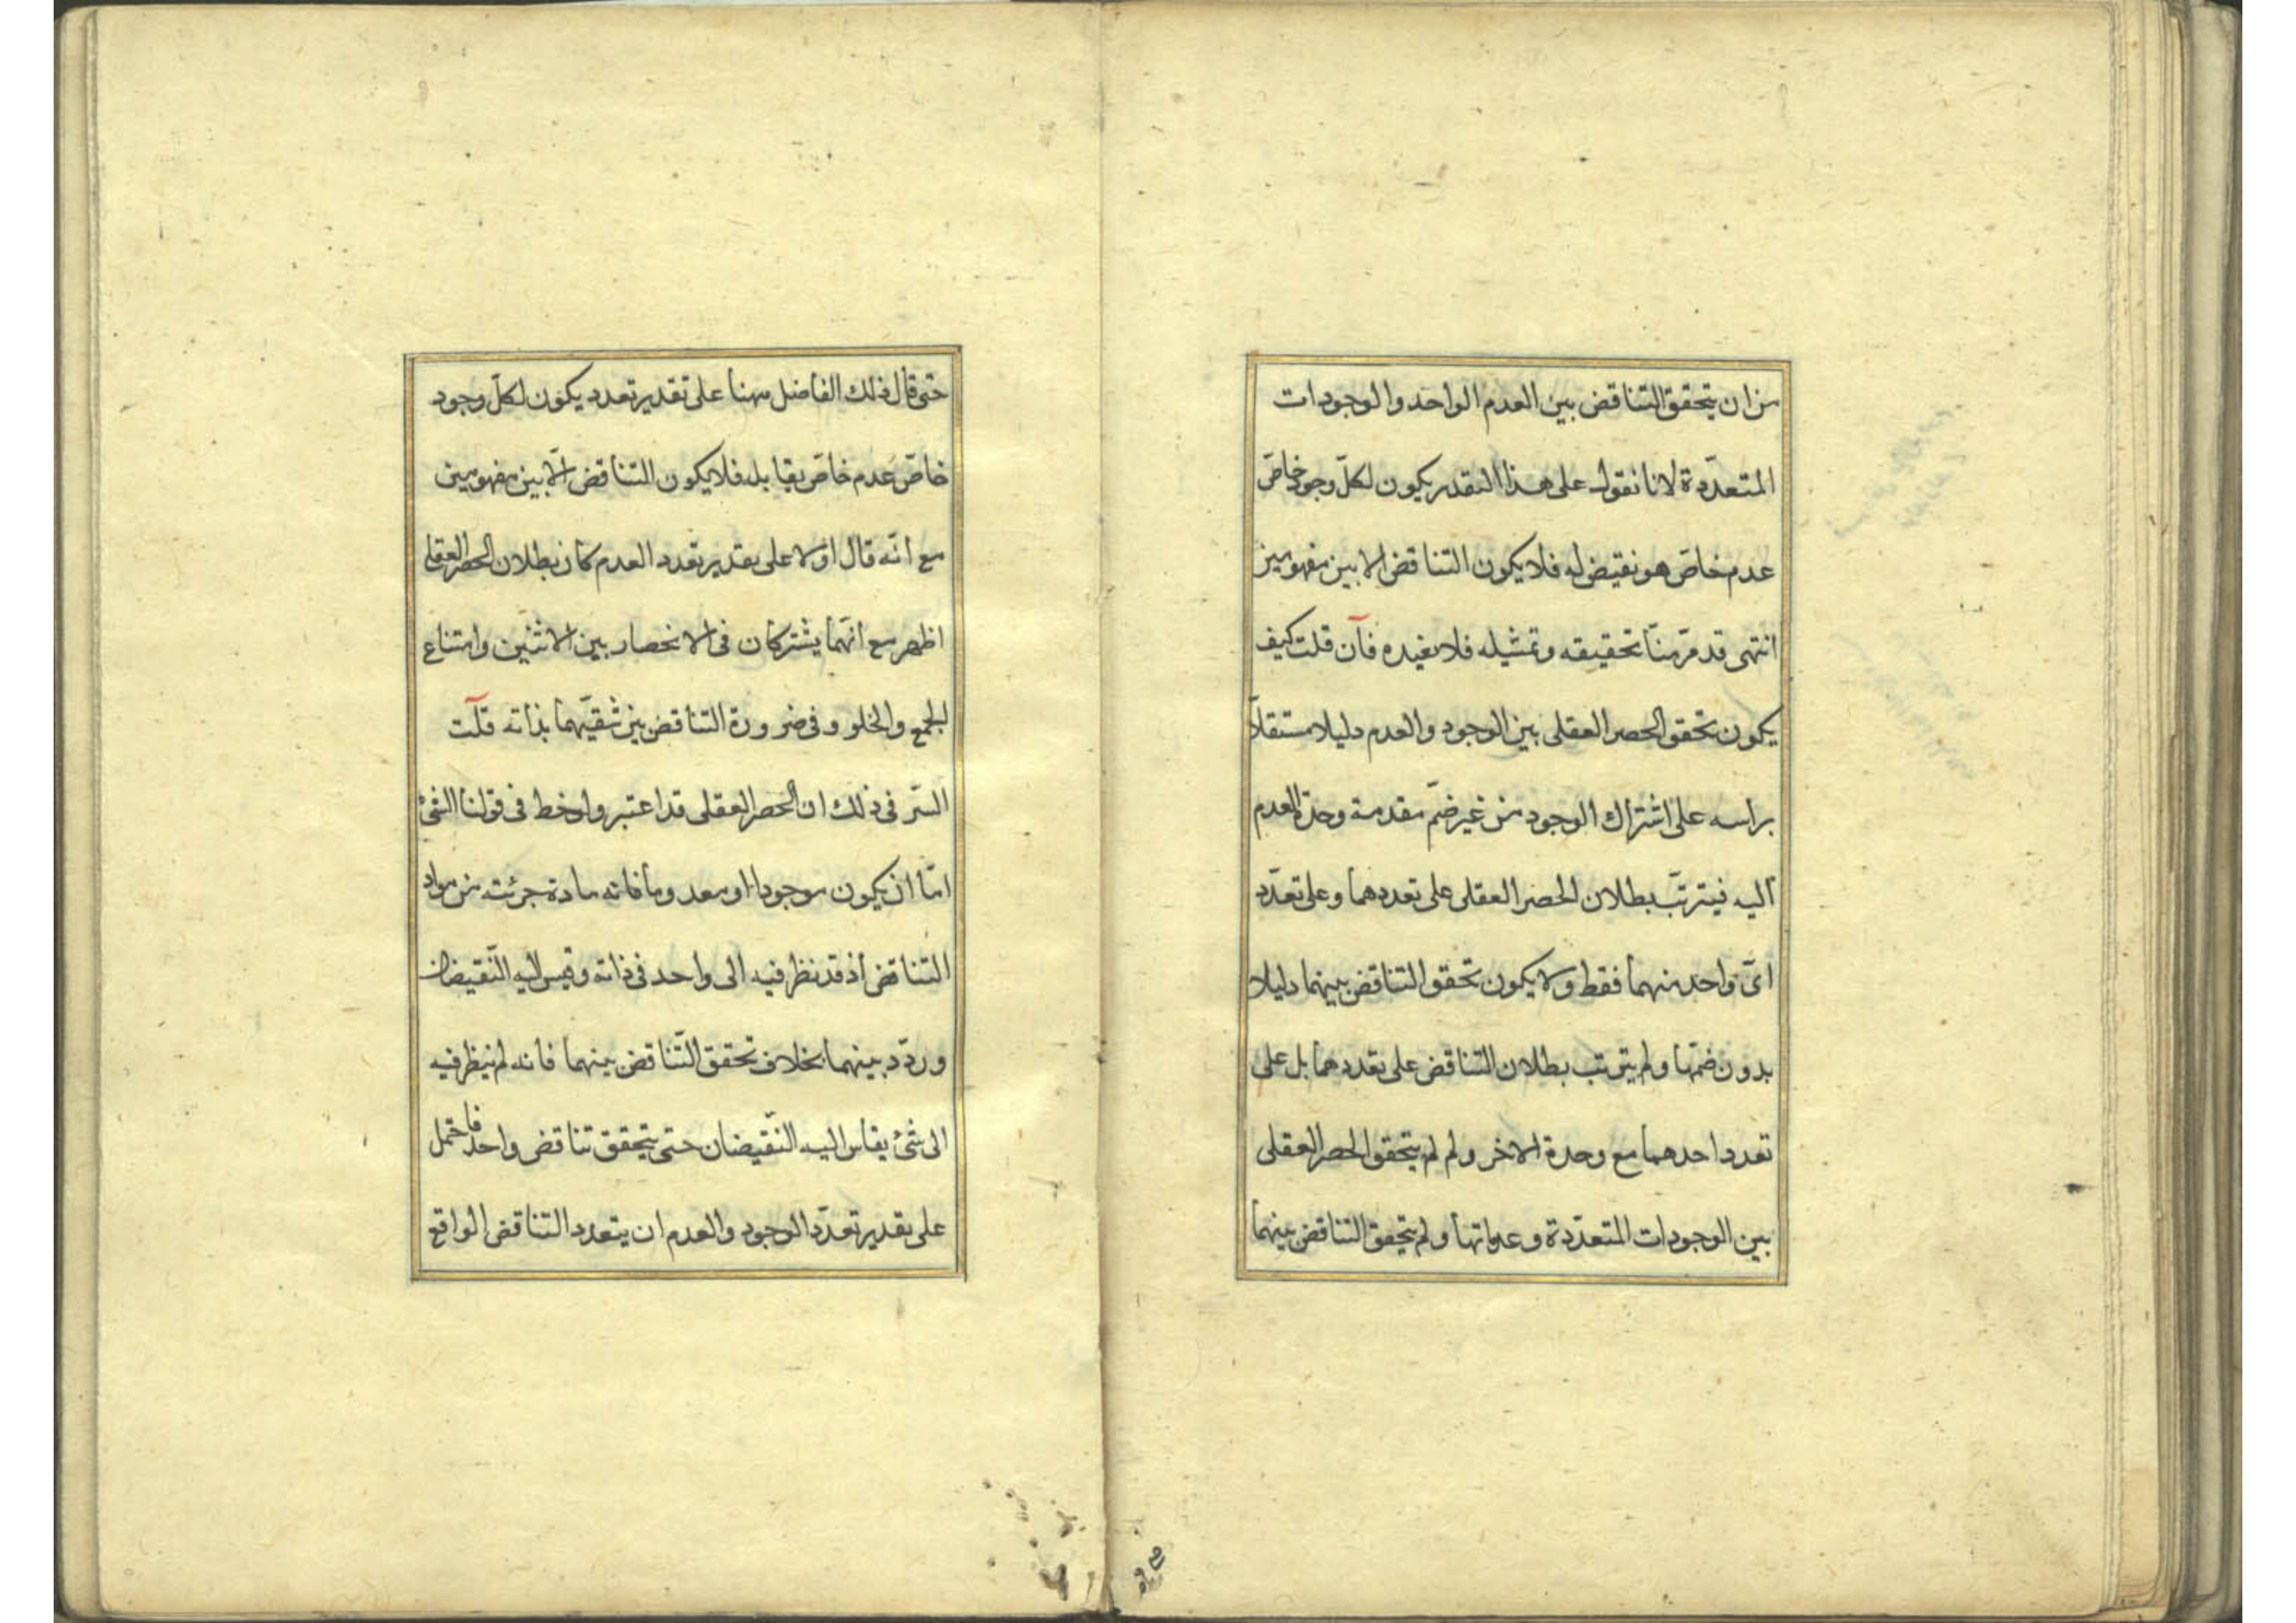 من ان يتحقق التناقض بين العدم الواحد والوجودات
المتعدّدة لانا نقول على هذا التقدير يكون لكلّ وجود خاصّ
عدم خاصّ هو نقيض له فلا يكون التناقض الا بين مفهومين
انتهى قد مرّ منّا تحقيقه وتمثيله فلا نعيده فآن قلت كيف
يكون تحقق الحصر العقلى بين الوجود والعدم دليلا مستقلّا
براسه على اشتراك الوجود من غير ضمّ مقدمة وحدة العدم
اليه فيترتّب بطلان الحصر العقلى على تعددهما وعلى تعدّد
اىّ واحد منهما فقط ولا يكون تحقق التناقض بينهما دليلا
بدون ضمّها ولم يترتب بطلان التناقض على تعددهما بل على
تعدد احدهما مع وحدة الاخر ولم لم يتحقق الحصر العقلى
بين الوجودات المتعدّدة وعدماتها ولم يتحقق التناقض بينهما
حتى قال ذلك الفاضل مهنا على تقدير تعدد يكون لكلّ وجود
خاصّ عدم خاصّ يقابله فلا يكون التناقض الّا بين مفهومين
مع انّه قال اوّلا على تقدير تعدد العدم كان بطلان الحصر العقلى
اظهر مع انّهما يشتركان فى الانحصار بين الاثنين وامتناع
الجمع والخلو وفى ضرورة التناقض بين شقّيهما بذاته قلت
السّر فى ذلك ان الحصر العقلى قد اعتبر ولوحظ فى قولنا الشئ
امّا ان يكون موجودا او معدوما فانه مادة جزئية من مواد
التناقض اذ قد نظر فيه الى واحد فى ذاته وقيس اليه النّقيضان
وردّد بينهما بخلاف تحقق التّناقض بينهما فانه لم ينظر فيه
الى شئ يقاس اليه النّقيضان حتى يتحقق تناقض واحد فاحتمل
على تقدير تعدّد الوجود والعدم ان يتعدد التناقض الواقع